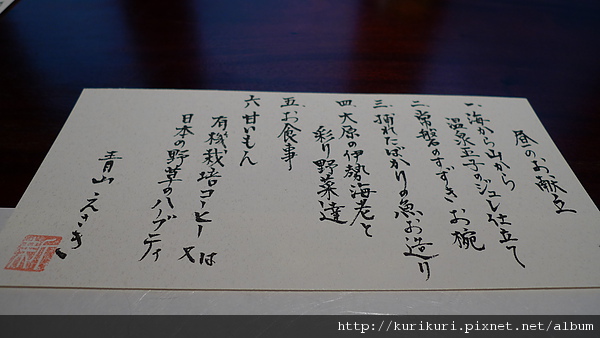 昼のお献立
一、海から山から
温泉玉子のジュレ仕立て
二、常磐のすずき お椀
三、捕れたばかりの魚お造り
四、大原の伊勢海老と
彩り野菜達
五、お食事
六、甘いもん
有機栽培コーヒー 又は
日本の野草のハーブティ
青山 えさき
http://kurikuri.pixnet.net/album